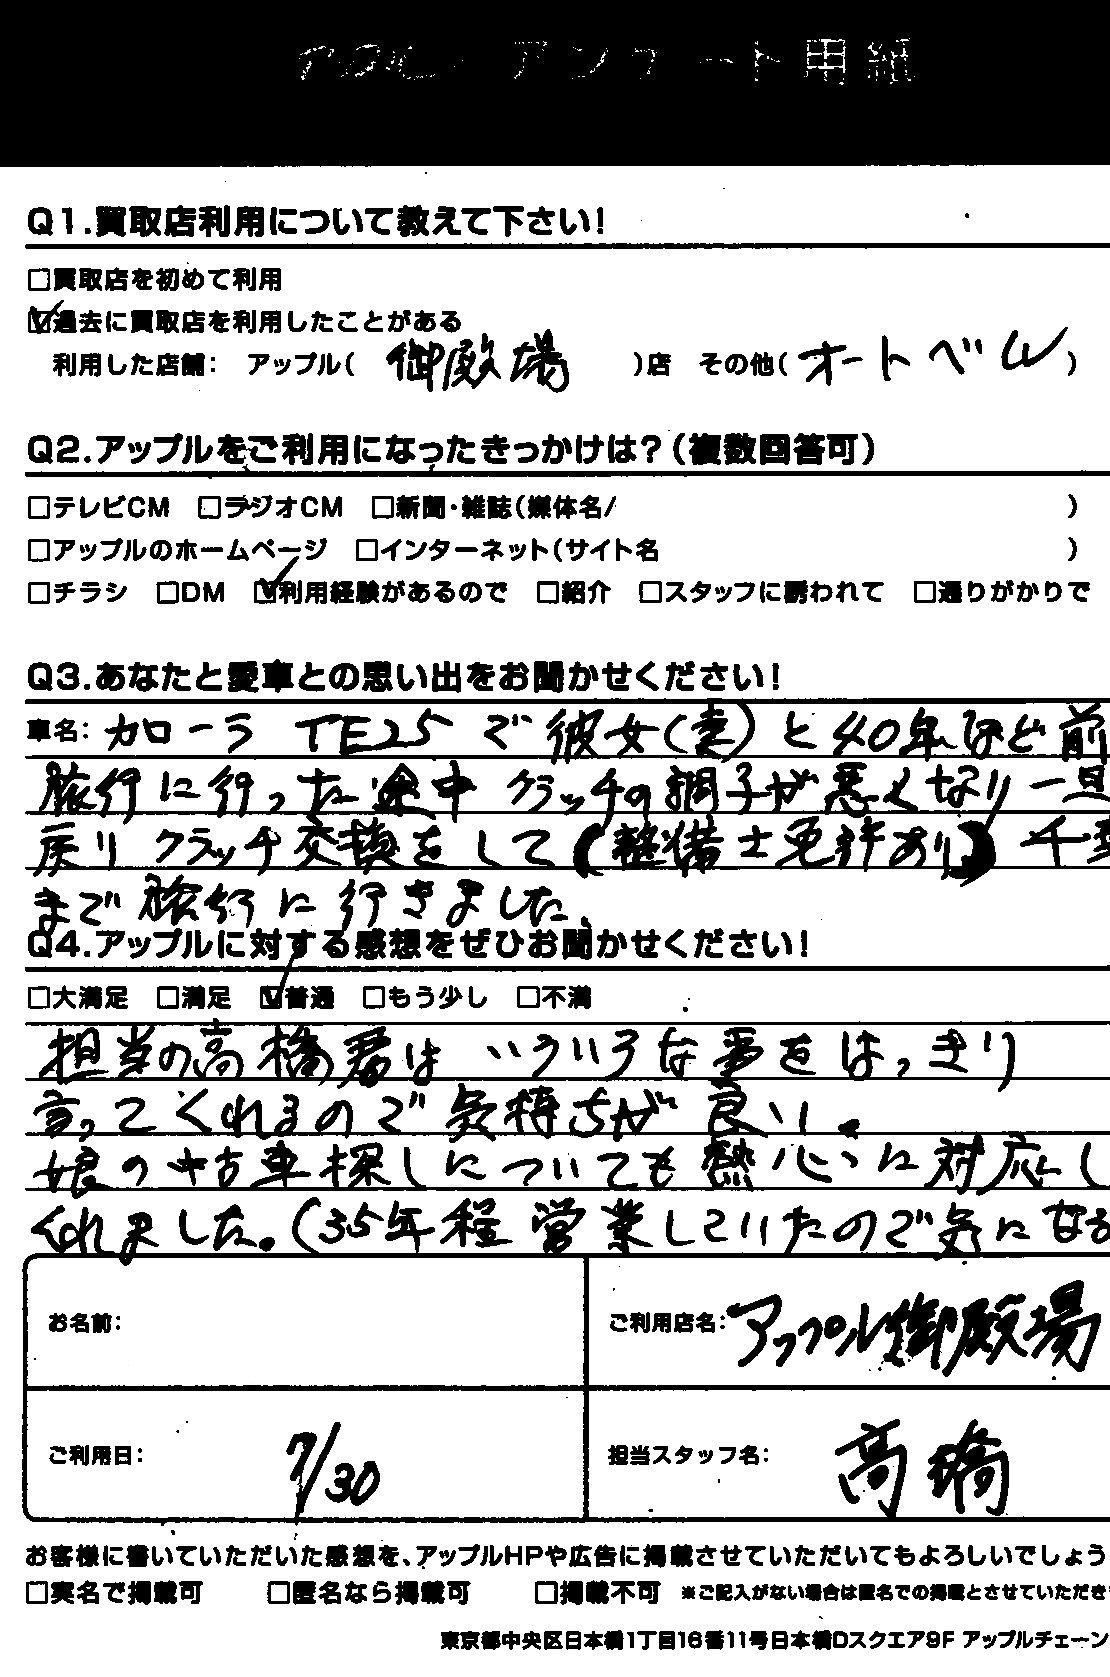 アップル アンケート用紙
Q1.買取店利用について教えて下さい!
□買取店を初めて利用
☑過去に買取店を利用したことがある
利用した店舗: アップル( 御殿場 )店 その他( オートベル )
Q2.アップルをご利用になったきっかけは?(複数回答可)
□テレビCM □ラジオCM □新聞・雑誌(媒体名/ )
□アップルのホームページ □インターネット(サイト名 )
□チラシ □DM ☑利用経験があるので □紹介 □スタッフに誘われて □通りがかりで
Q3.あなたと愛車との思い出をお聞かせください!
車名: カローラ TE25 で彼女(妻)と40年ほど前
旅行に行った途中 クラッチの調子が悪くなり一旦
戻り クラッチ交換をして(整備士免許あり)千葉
まで旅行に行きました。
Q4.アップルに対する感想をぜひお聞かせください!
□大満足 □満足 ☑普通 □もう少し □不満
担当の高橋君は いろいろな事をはっきり
言ってくれるので気持ちが良い。
娘の中古車探しについても熱心に対応し
くれました。(35年程営業していたので気になる
お名前:
ご利用店名: アップル御殿場
ご利用日: 7/30
担当スタッフ名: 高橋
お客様に書いていただいた感想を、アップルHPや広告に掲載させていただいてもよろしいでしょう
□実名で掲載可 □匿名なら掲載可 □掲載不可 ※ご記入がない場合は匿名での掲載とさせていただき
東京都中央区日本橋1丁目16番11号日本橋Dスクエア9F アップルチェーン